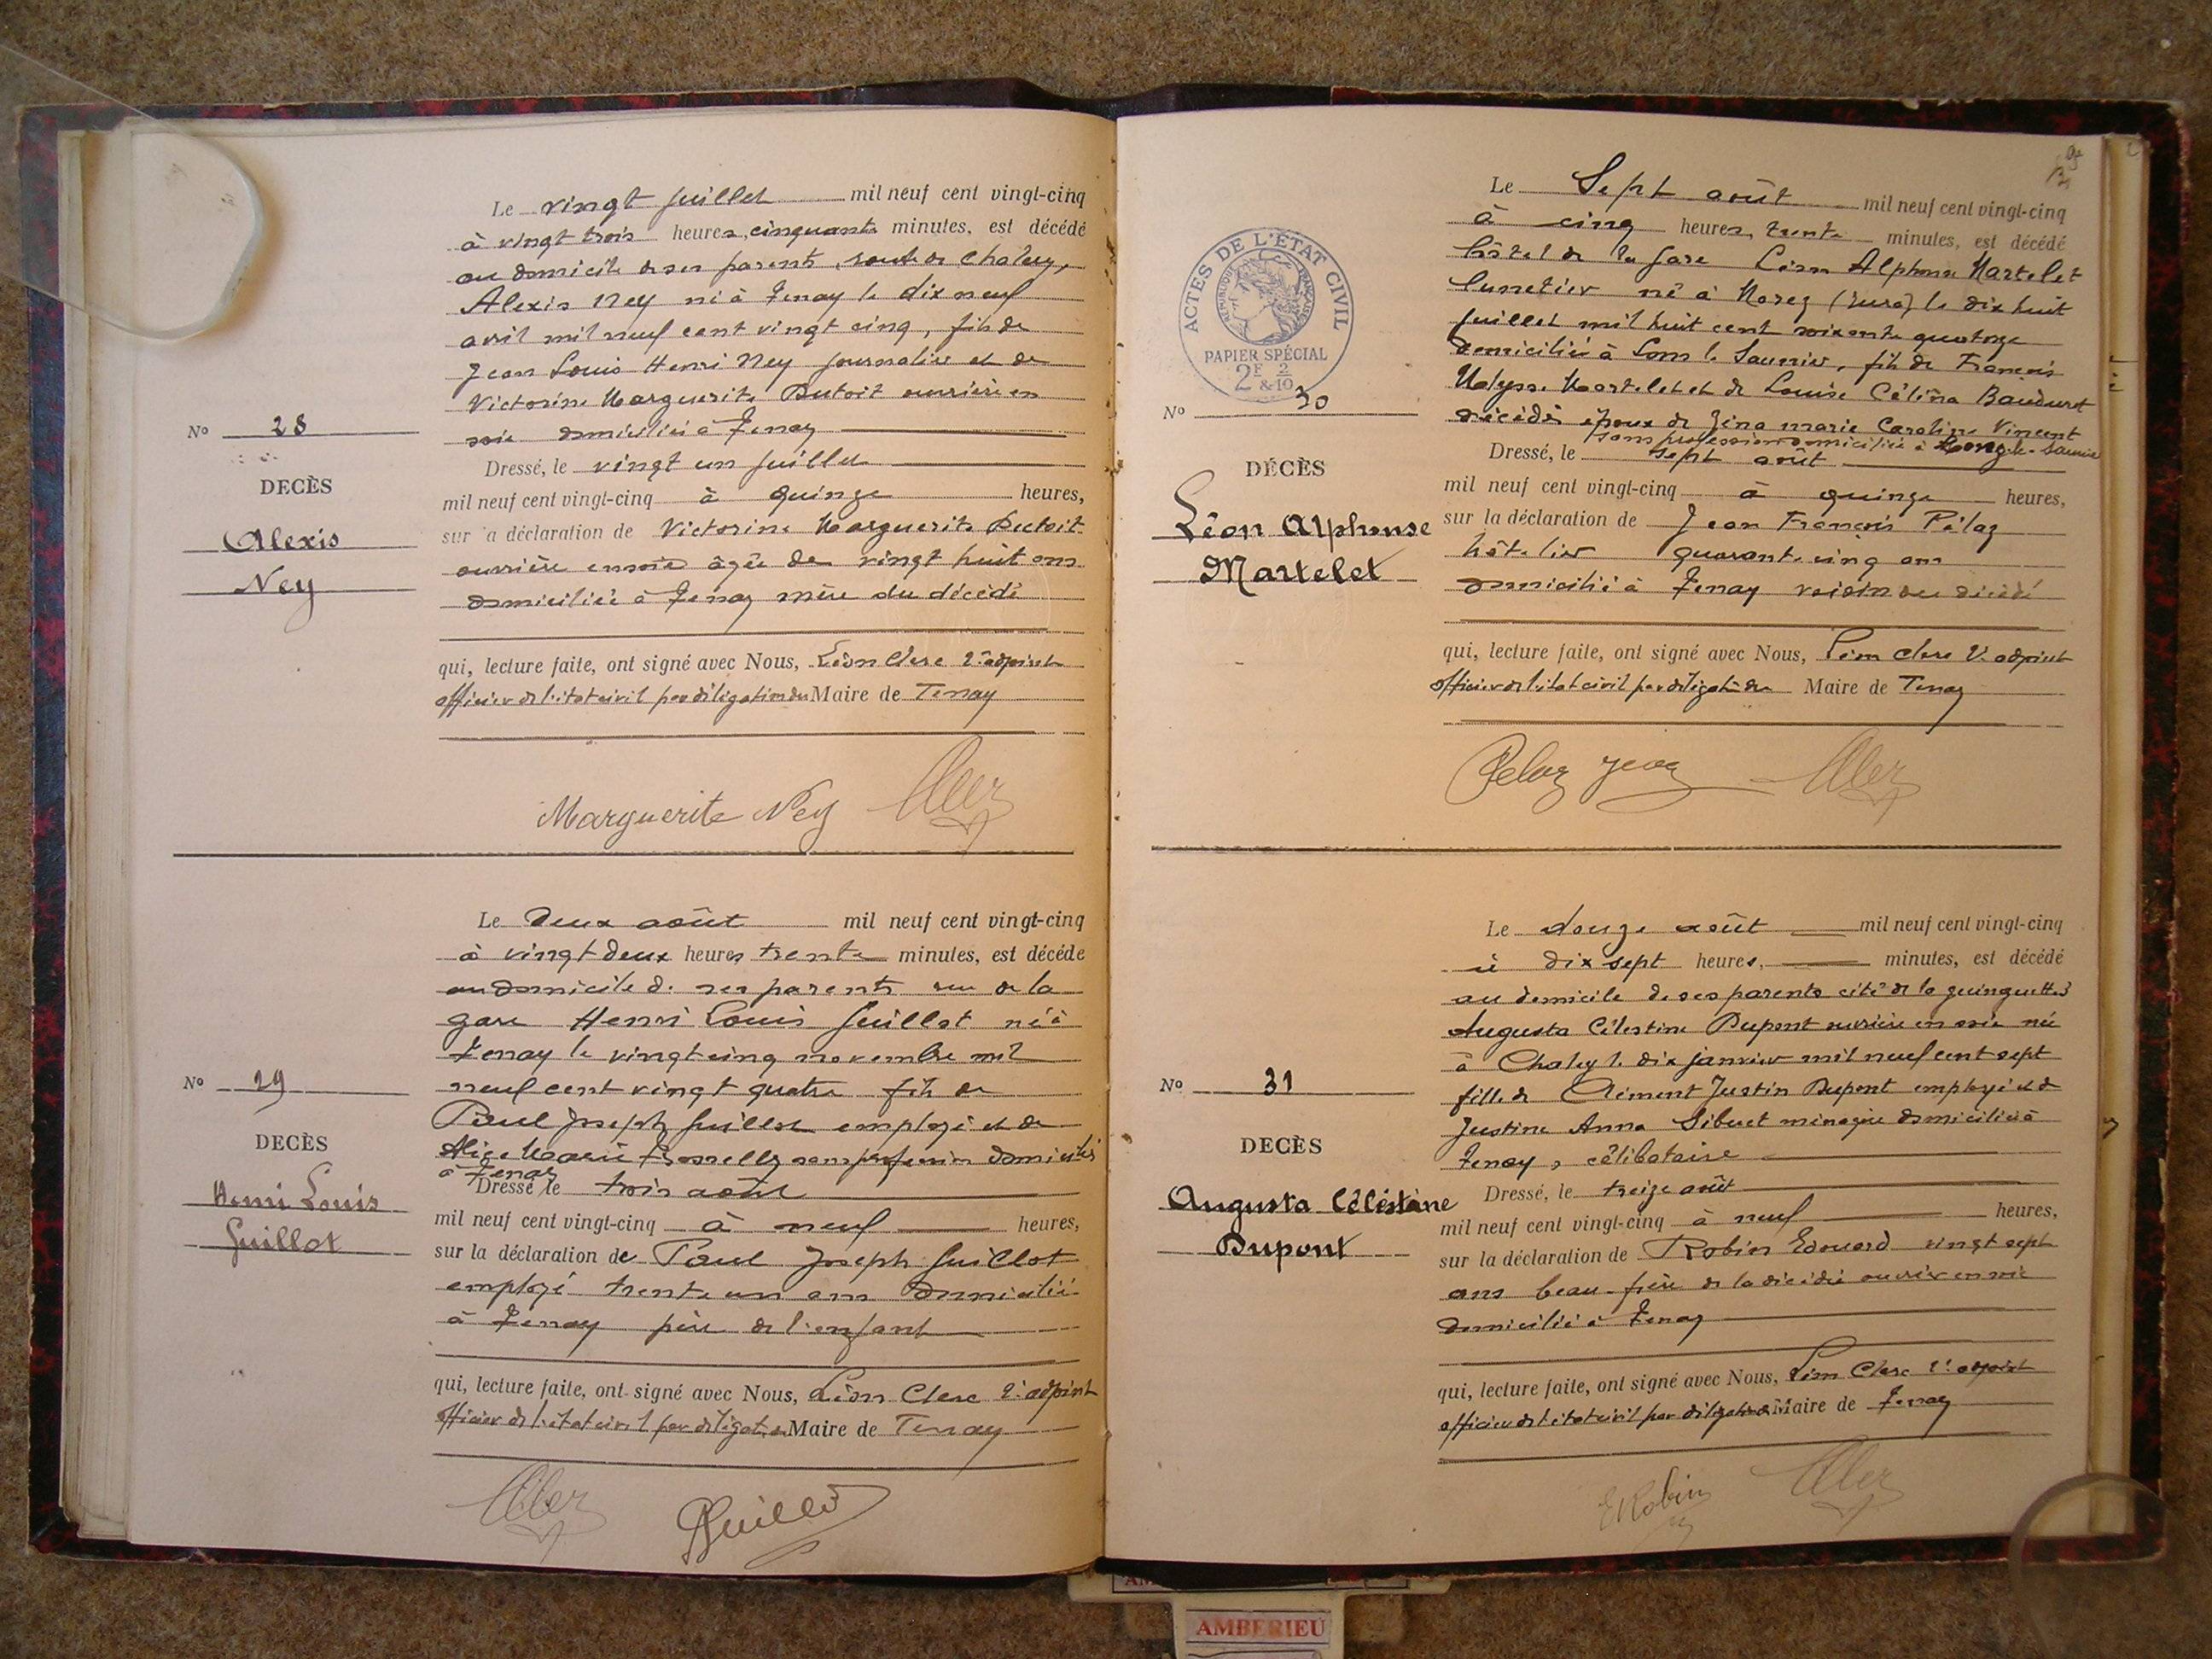 Le vingt juillet mil neuf cent vingt-cinq
à vingt trois heures, cinquante minutes, est décédé
au domicile de ses parents, route de Chaley,
Alexis Ney né à Tenay le dix neuf
avril mil neuf cent vingt cinq, fils de
Jean Louis Henri Ney journalier et de
Victorine Marguerite Dutoit ouvrière en
soie domiciliés à Tenay
No 28
DECÈS
Alexis
Ney
Dressé, le vingt un juillet
mil neuf cent vingt-cinq à quinze heures,
sur la déclaration de Victorine Marguerite Dutoit
ouvrière en soie âgée de vingt huit ans
domiciliée à Tenay mère du décédé
qui, lecture faite, ont signé avec Nous, Léon Clerc 2e adjoint
officier de l'état civil par délégation du Maire de Tenay
Marguerite Ney
Le deux août mil neuf cent vingt-cinq
à vingt deux heures trente minutes, est décédé
au domicile de ses parents rue de la
gare Henri Louis Guillot né à
Tenay le vingt cinq novembre mil
neuf cent vingt quatre fils de
Paul Joseph Guillot employé et de
Alice Marie sans profession domiciliés
à Tenay
No 29
DECÈS
Henri Louis
Guillot
Dressé le trois août
mil neuf cent vingt-cinq à neuf heures,
sur la déclaration de Paul Joseph Guillot
employé trente un ans domicilié
à Tenay père de l'enfant
qui, lecture faite, ont signé avec Nous, Léon Clerc 2e adjoint
officier de l'état civil par délégation du Maire de Tenay
PGuillot
ACTES DE L'ÉTAT CIVIL
RÉPUBLIQUE FRANÇAISE
PAPIER SPÉCIAL
2F & 2/10
Le Sept août mil neuf cent vingt-cinq
à cinq heures, trente minutes, est décédé
hôtel de la gare Léon Alphonse Martelet
lunetier né à Morez (Jura) le dix huit
juillet mil huit cent soixante quatorze
domicilié à Lons le Saunier, fils de François
Ulysse Martelet et de Louise Célina Bauduret
décédés époux de Zina Marie Caroline Vincent
sans profession domiciliée à Lons-le-Saunier
No 30
DÉCÈS
Léon Alphonse
Martelet
Dressé, le sept août
mil neuf cent vingt-cinq à quinze heures,
sur la déclaration de Jean François Pélaz
hôtelier quarante cinq ans
domicilié à Tenay voisin du décédé
qui, lecture faite, ont signé avec Nous, Léon Clerc 2e adjoint
officier de l'état civil par délégation du Maire de Tenay
Pelaz Jean
Le douze août mil neuf cent vingt-cinq
à dix sept heures, minutes, est décédé
au domicile de ses parents cité de la guinguette
Augusta Célestine Dupont ouvrière en soie née
à Chaley le dix janvier mil neuf cent sept
fille de Clément Justin Dupont employé et de
Justine Anna Sibuet ménagère domiciliés à
Tenay, célibataire
No 31
DECÈS
Augusta Céléstine
Dupont
Dressé, le treize août
mil neuf cent vingt-cinq à neuf heures,
sur la déclaration de Robin Edouard vingt sept
ans beau-frère de la décédée ouvrier en soie
domicilié à Tenay
qui, lecture faite, ont signé avec Nous, Léon Clerc 2e adjoint
officier de l'état civil par délégation du Maire de Tenay
ERobin
AMBERIEU